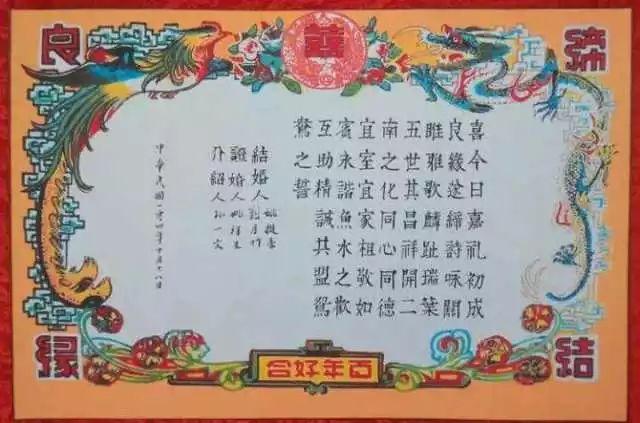 囍
締結
良緣
喜今日嘉礼初成
良緣遂締詩咏關
雎雅歌麟趾瑞葉
五世其昌祥開二
南之化同心同德
宜室宜家相敬如
賓永諧魚水之歡
互助精誠共盟鴛
鴦之誓
結婚人
證婚人 姚祥生
介紹人
中華民國二十四年十月十八日
百年好合